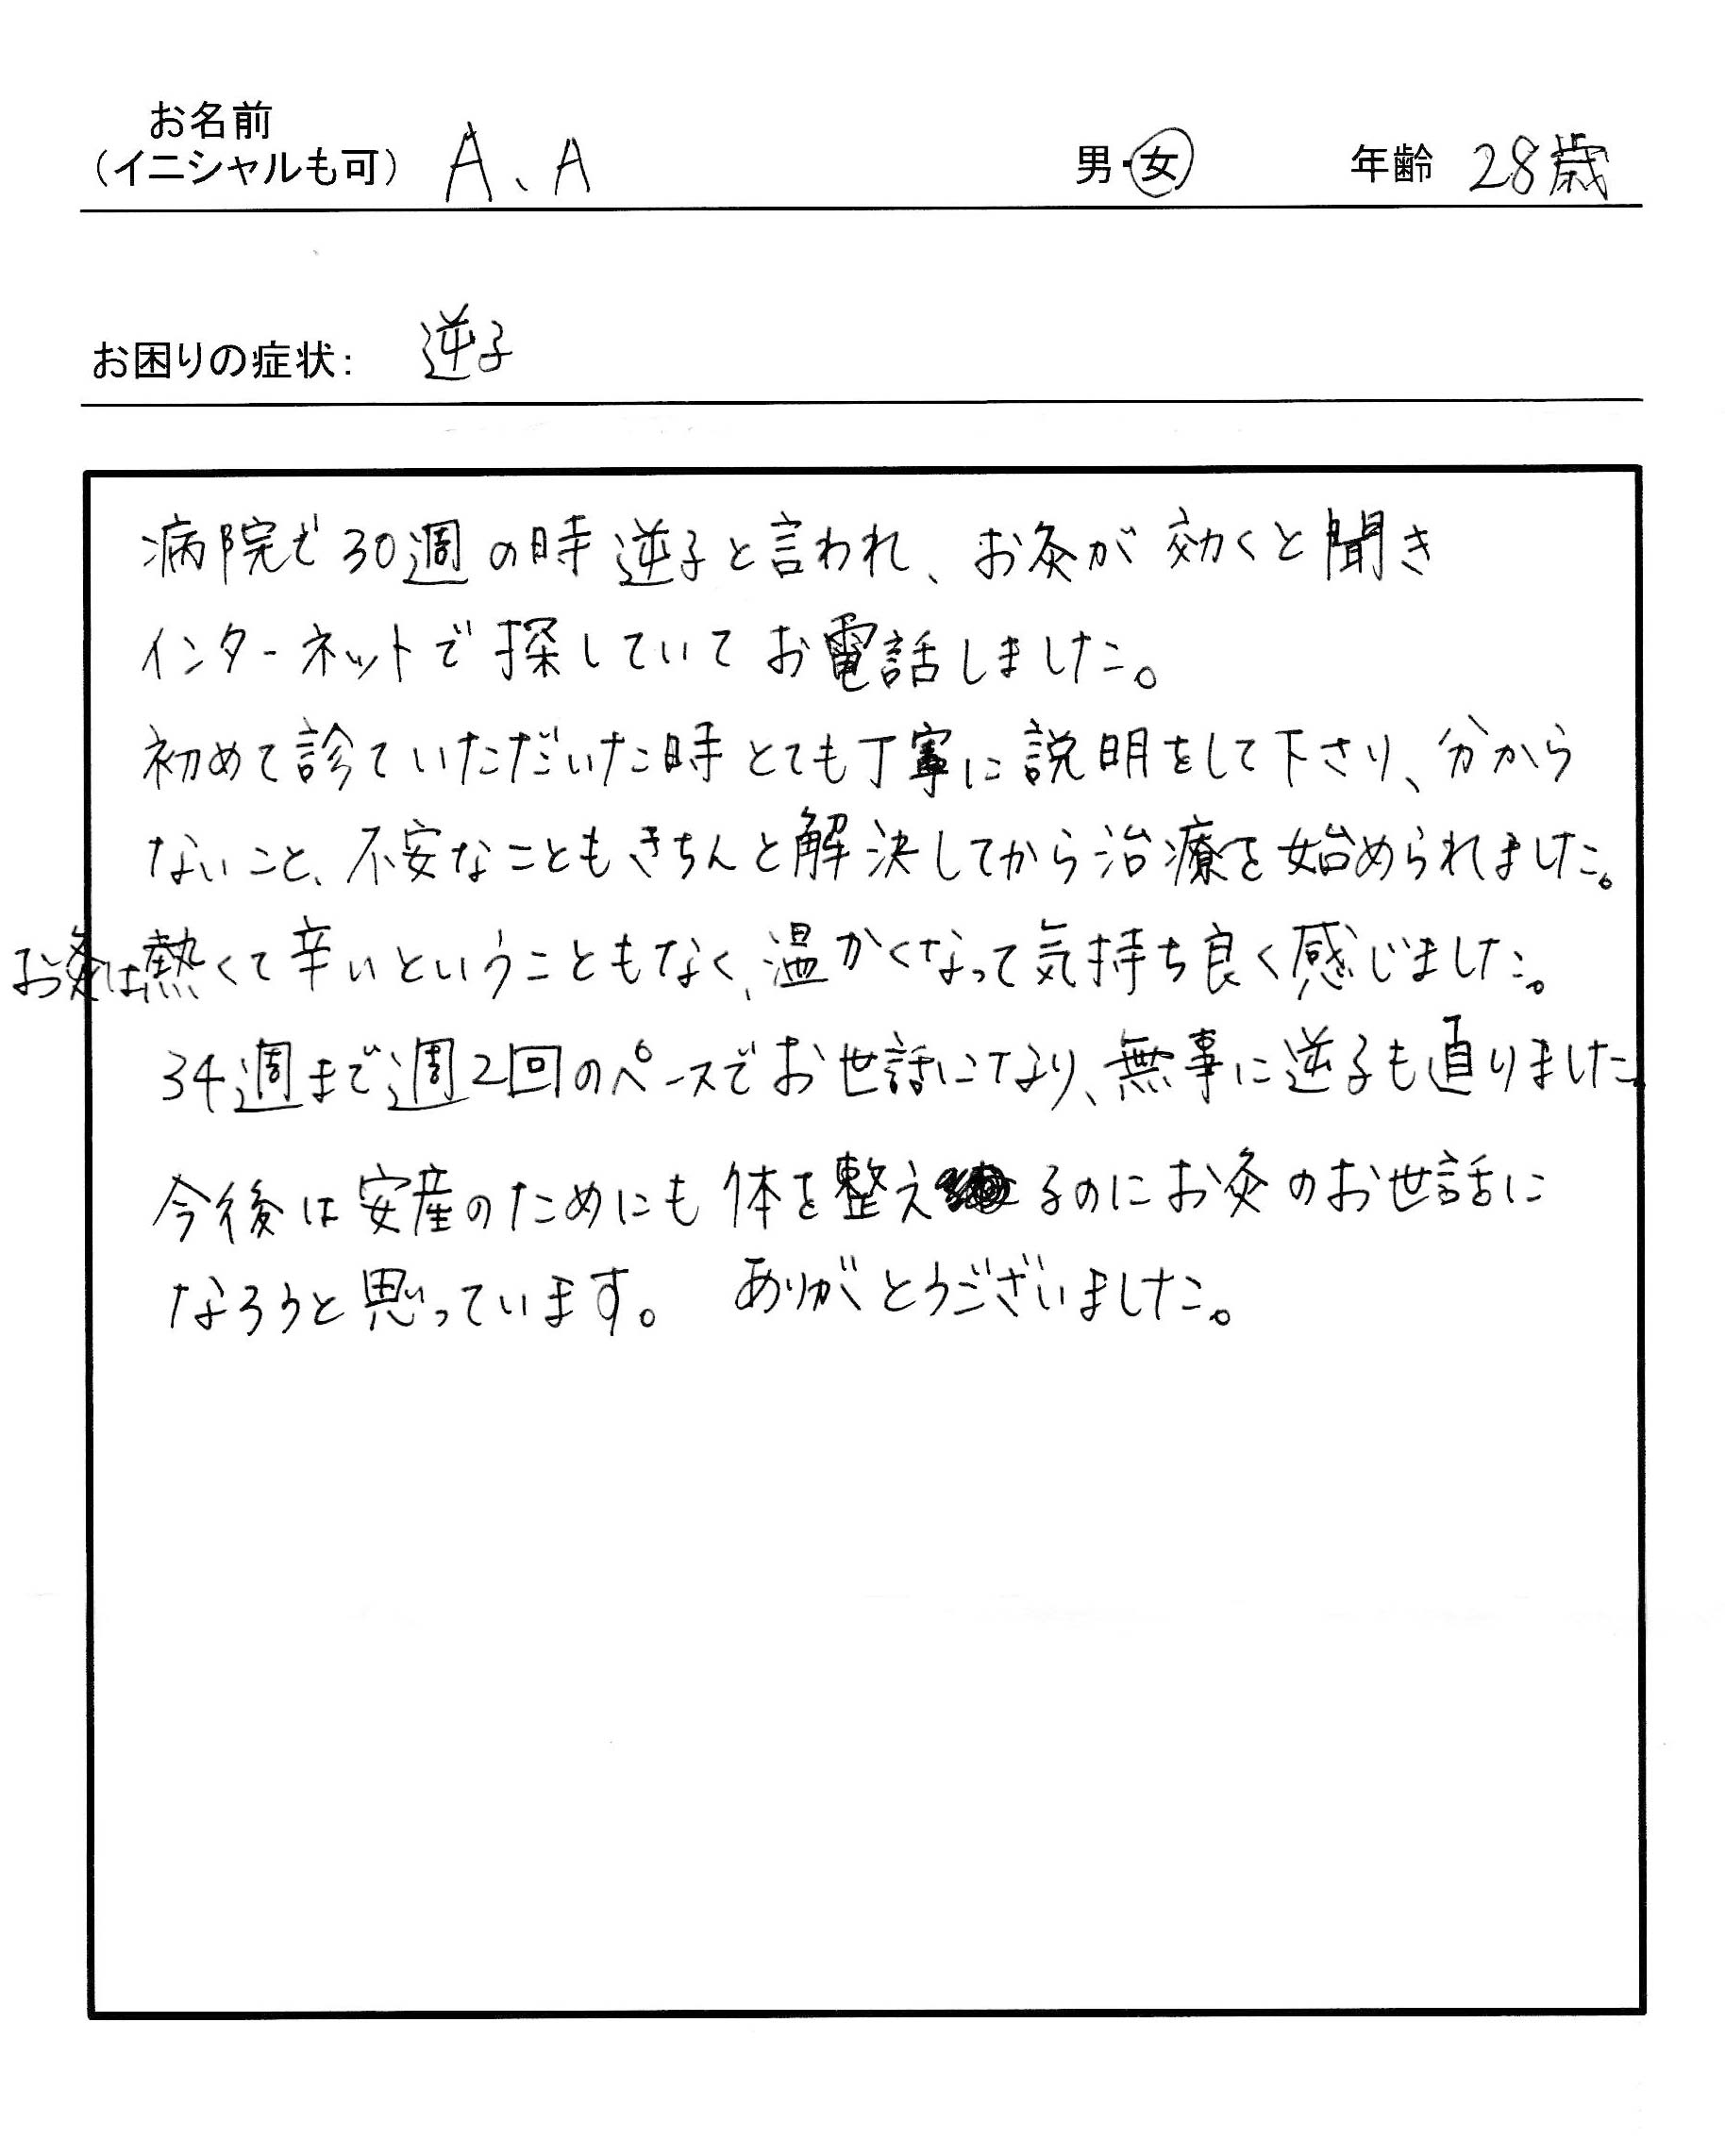 お名前
(イニシャルも可) A、A 男・女 年齢 28歳
お困りの症状: 逆子
病院で30週の時逆子と言われ、お灸が効くと聞き
インターネットで探していてお電話しました。
初めて診ていただいた時とても丁寧に説明をして下さり、分から
ないこと、不安なこともきちんと解決してから治療を始められました。
お灸は熱くて辛いということもなく、温かくなって気持ち良く感じました。
34週まで週2回のペースでお世話になり、無事に逆子も直りました。
今後は安産のためにも体を整えるのにお灸のお世話に
なろうと思っています。 ありがとうございました。